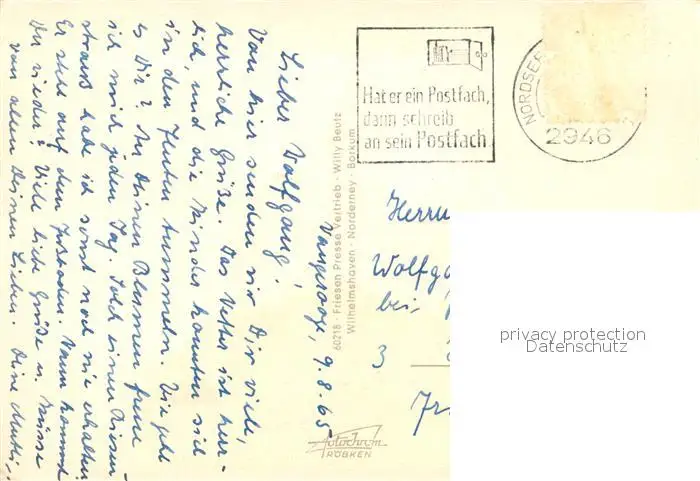 Wangerooge, 9.8.65
Lieber Wolfgang!
Von hier senden wir Dir viele,
herrliche Grüße. Das Wetter ist herr-
lich, und die Kinder konnten sich
in den Fluten tummeln. Wie geht
es Dir? An Deinen Blumen freue
ich mich jeden Tag. Solch einen Riesen-
strauß habe ich sonst noch nie erhalten.
Er steht auf dem Fussboden. Wann kommst
Du wieder? Viele liebe Grüße u. Küsse
von allen Deinen Lieben. Deine Mutti
60218 · Friesen Presse Vertrieb · Willy Beutz
Wilhelmshaven · Norderney · Borkum
Hat er ein Postfach,
dann schreib
an sein Postfach
NORDSEE
2946
Herrn
Wolfga
bei
3
Autochrom
RÖBKEN
privacy protection
Datenschutz